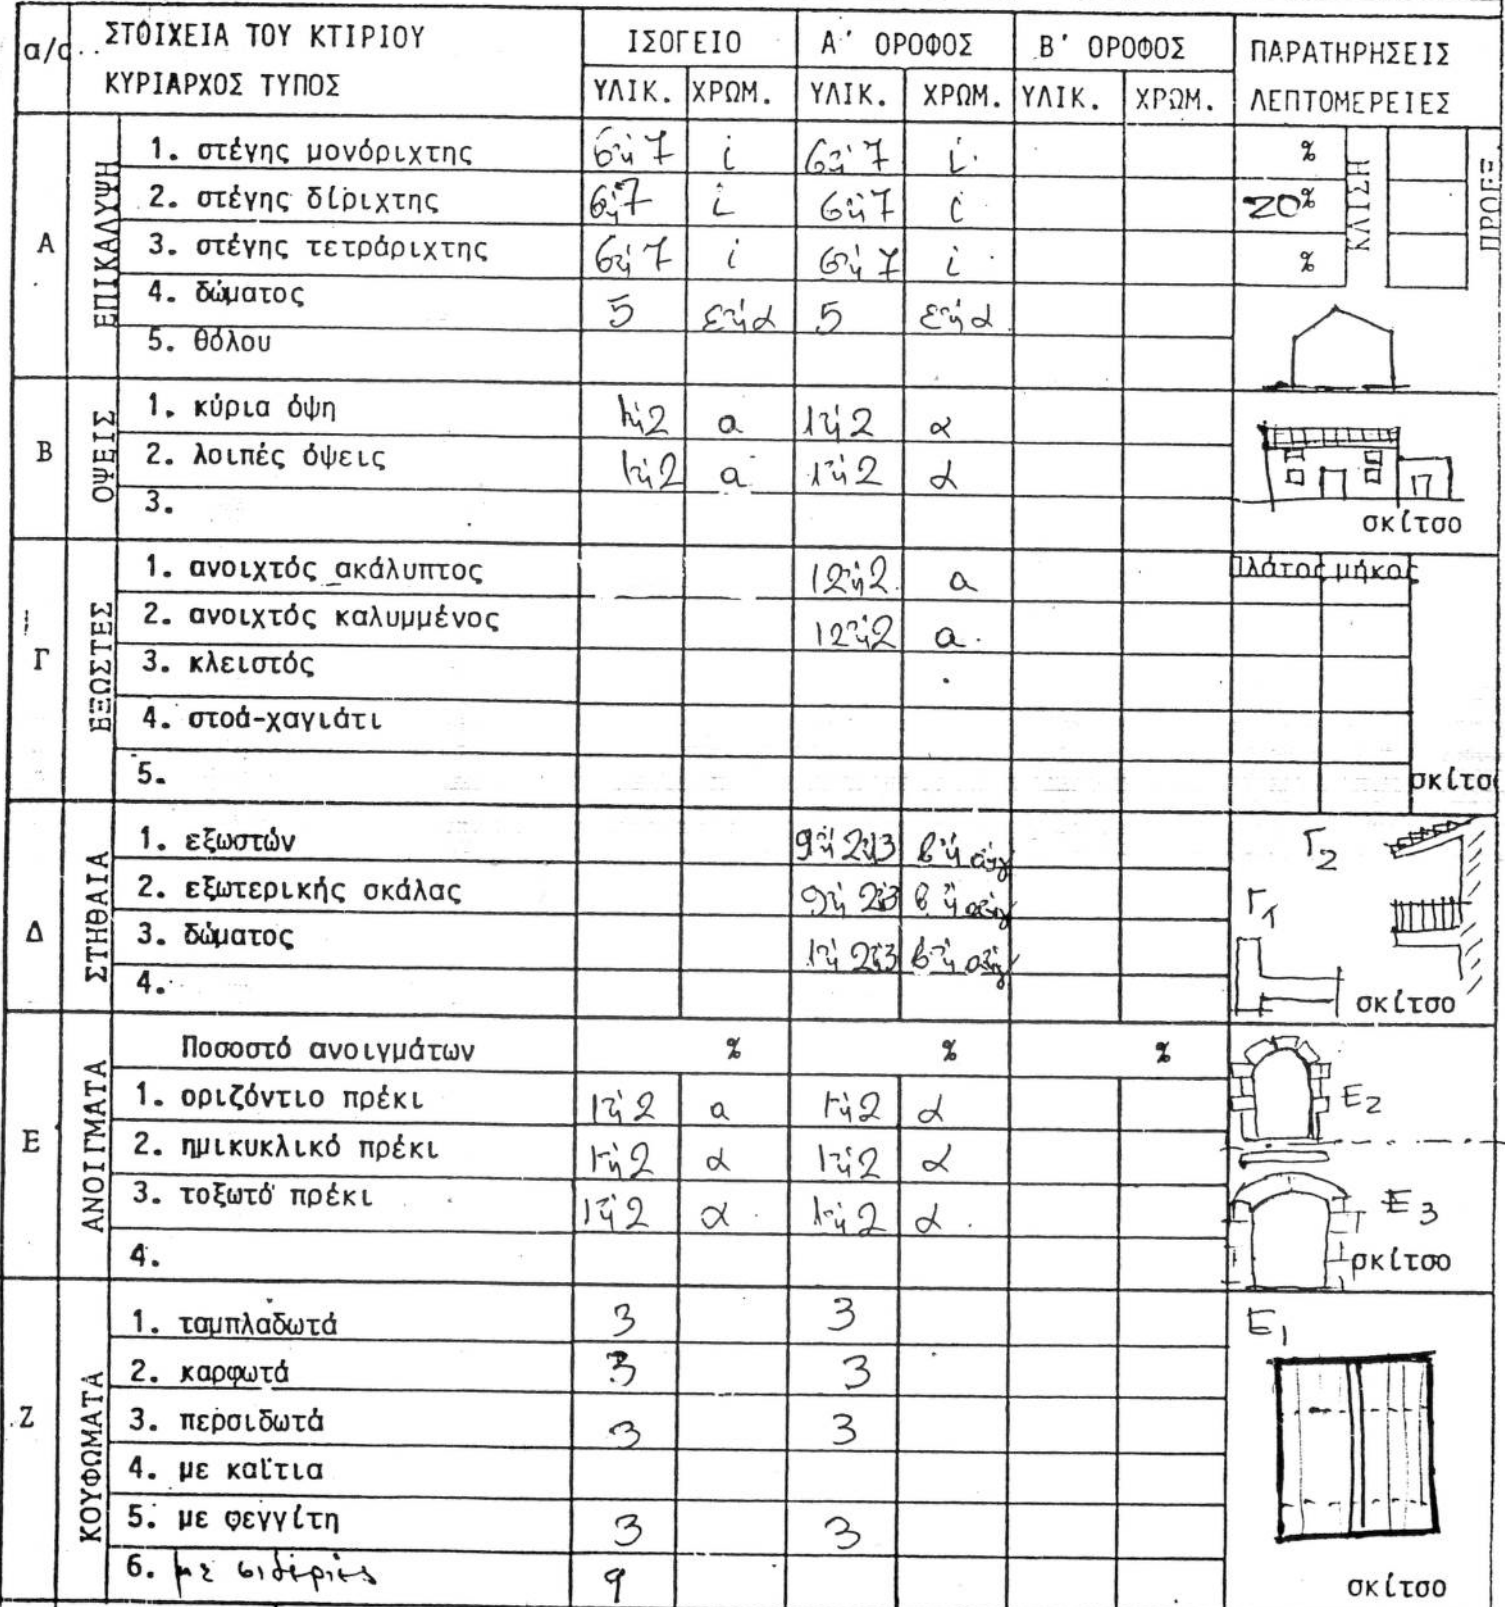 α/α ΣΤΟΙΧΕΙΑ ΤΟΥ ΚΤΙΡΙΟΥ ΙΣΟΓΕΙΟ Α' ΟΡΟΦΟΣ Β' ΟΡΟΦΟΣ ΠΑΡΑΤΗΡΗΣΕΙΣ
ΚΥΡΙΑΡΧΟΣ ΤΥΠΟΣ ΥΛΙΚ. ΧΡΩΜ. ΥΛΙΚ. ΧΡΩΜ. ΥΛΙΚ. ΧΡΩΜ. ΛΕΠΤΟΜΕΡΕΙΕΣ
Α ΕΠΙΚΑΛΥΨΗ
1. στέγης μονόριχτης 6ή7 i 6ή7 i % ΚΛΙΣΗ ΠΡΟΕΞ.
2. στέγης δίριχτης 6ή7 i 6ή7 i 20%
3. στέγης τετράριχτης 6ή7 i 6ή7 i %
4. δώματος 5 εήα 5 εήα
5. θόλου
Β ΟΨΕΙΣ
1. κύρια όψη 1ή2 α 1ή2 α
2. λοιπές όψεις 1ή2 α 1ή2 α
3. σκίτσο
Γ ΕΞΩΣΤΕΣ
1. ανοιχτός ακάλυπτος 12ή2 α Πλάτος μήκος
2. ανοιχτός καλυμμένος 12ή2 α
3. κλειστός
4. στοά-χαγιάτι
5. σκίτσο
Δ ΣΤΗΘΑΙΑ
1. εξωστών 9ή2ή3 Γ2
2. εξωτερικής σκάλας 9ή2ή3 Γ1
3. δώματος 1ή2ή3
4. σκίτσο
Ε ΑΝΟΙΓΜΑΤΑ
Ποσοστό ανοιγμάτων % % %
1. οριζόντιο πρέκι 1ή2 α 1ή2 α Ε2
2. ημικυκλικό πρέκι 1ή2 α 1ή2 α
3. τοξωτό πρέκι 1ή2 α 1ή2 α Ε3
4. σκίτσο
Ζ ΚΟΥΦΩΜΑΤΑ
1. ταμπλαδωτά 3 3 Ε1
2. καρφωτά 3 3
3. περσιδωτά 3 3
4. με καΐτια
5. με φεγγίτη 3 3
6. με σιδεριές 9 σκίτσο